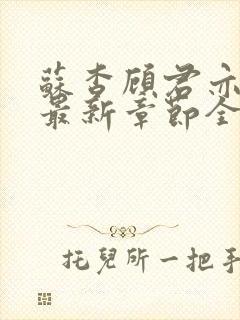 蘇杏顾君亦
最新章節全
托兒所一把手